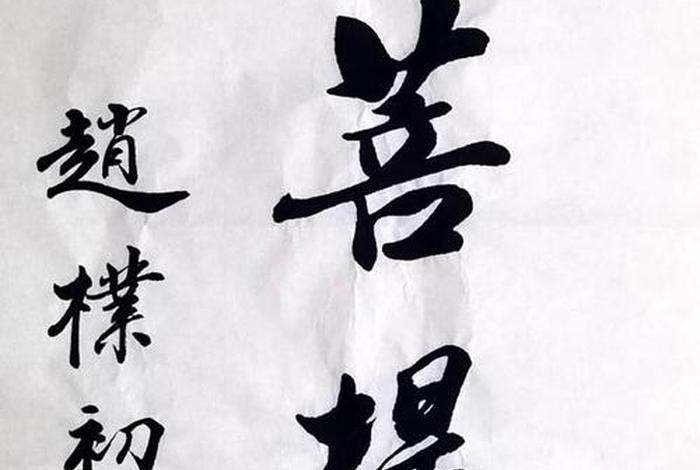 菩提
趙樸初